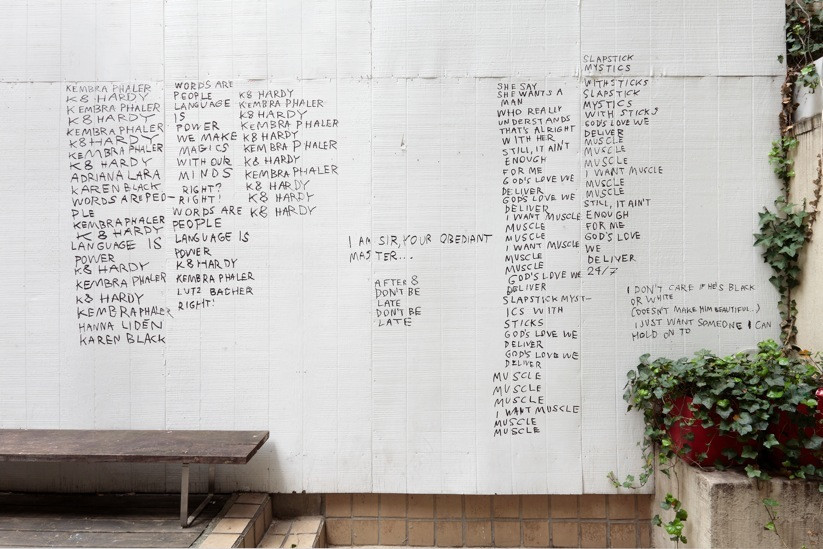 KEMBRA PHALER
K8 HARDY
KEMBRA PHALER
K8 HARDY
KEMBRA PHALER
K8 HARDY
KEMBRA PHALER
K8 HARDY
ADRIANA LARA
KAREN BLACK
WORDS ARE PEO-
PLE
KEMBRA PHALER
K8 HARDY
LANGUAGE IS
POWER
K8 HARDY
KEMBRA PHALER
K8 HARDY
KEMBRA PHALER
HANNA LIDEN
KAREN BLACK
WORDS ARE
PEOPLE
LANGUAGE
IS
POWER
WE MAKE
MAGICS
WITH OUR
MINDS
RIGHT?
RIGHT!
WORDS ARE
PEOPLE
LANGUAGE IS
POWER
K8 HARDY
KEMBRA PHALER
LUTZ BACHER
RIGHT!
K8 HARDY
KEMBRA PHALER
K8 HARDY
KEMBRA PHALER
K8 HARDY
KEMBRA PHALER
K8 HARDY
KEMBRA PHALER
K8 HARDY
K8 HARDY
K8 HARDY
I AM SIR, YOUR OBEDIANT
MASTER...
AFTER 8
DON'T BE
LATE
DON'T BE
LATE
SHE SAY
SHE WANTS A
MAN
WHO REALLY
UNDERSTANDS
THAT'S ALRIGHT
WITH HER
STILL, IT AIN'T
ENOUGH
FOR ME
GOD'S LOVE WE
DELIVER
GOD'S LOVE WE
DELIVER
I WANT MUSCLE
MUSCLE
MUSCLE
I WANT MUSCLE
MUSCLE
MUSCLE
GOD'S LOVE WE
DELIVER
SLAPSTICK MYST-
ICS WITH
STICKS
GOD'S LOVE WE
DELIVER
GOD'S LOVE WE
DELIVER
MUSCLE
MUSCLE
MUSCLE
I WANT MUSCLE
MUSCLE
MUSCLE
SLAPSTICK
MYSTICS
WITH STICKS
SLAPSTICK
MYSTICS
WITH STICKS
GOD'S LOVE WE
DELIVER
MUSCLE
MUSCLE
MUSCLE
I WANT MUSCLE
MUSCLE
MUSCLE
STILL, IT AIN'T
ENOUGH
FOR ME
GOD'S LOVE
WE
DELIVER
24/7
I DON'T CARE IF HE'S BLACK
OR WHITE
(DOESN'T MAKE HIM BEAUTIFUL..)
I JUST WANT SOMEONE I CAN
HOLD ON TO